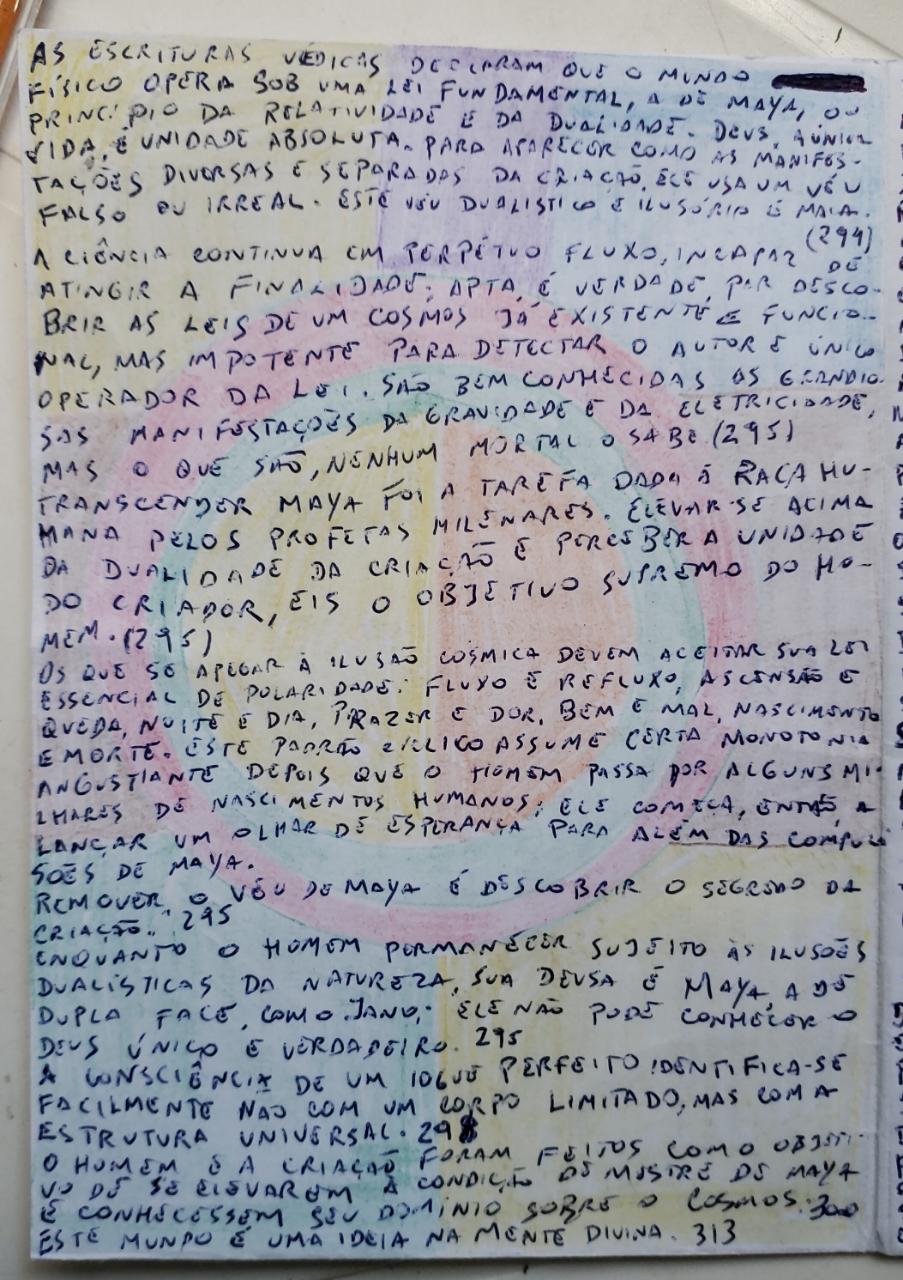 AS ESCRITURAS VÉDICAS DECLARAM QUE O MUNDO
FÍSICO OPERA SOB UMA LEI FUNDAMENTAL, A DE MAYA, OU
PRINCÍPIO DA RELATIVIDADE E DA DUALIDADE. DEUS, A ÚNICA
VIDA, É UNIDADE ABSOLUTA. PARA APARECER COMO AS MANIFES-
TAÇÕES DIVERSAS E SEPARADAS DA CRIAÇÃO, ELE USA UM VÉU
FALSO OU IRREAL. ESTE VÉU DUALÍSTICO E ILUSÓRIO É MAIA.
(294)
A CIÊNCIA CONTINUA EM PERPÉTUO FLUXO, INCAPAZ DE
ATINGIR A FINALIDADE; APTA, É VERDADE, POR DESCO-
BRIR AS LEIS DE UM COSMOS JÁ EXISTENTE E FUNCIO-
NAL, MAS IMPOTENTE PARA DETECTAR O AUTOR E ÚNICO
OPERADOR DA LEI. SÃO BEM CONHECIDAS AS GRANDIO-
SAS MANIFESTAÇÕES DA GRAVIDADE E DA ELETRICIDADE,
MAS O QUE SÃO, NENHUM MORTAL O SABE (295)
TRANSCENDER MAYA FOI A TAREFA DADA À RAÇA HU-
MANA PELOS PROFETAS MILENARES. ELEVAR-SE ACIMA
DA DUALIDADE DA CRIAÇÃO E PERCEBER A UNIDADE
DO CRIADOR, EIS O OBJETIVO SUPREMO DO HO-
MEM. (295)
OS QUE SE APEGAR À ILUSÃO CÓSMICA DEVEM ACEITAR SUA LEI
ESSENCIAL DE POLARIDADE: FLUXO E REFLUXO, ASCENSÃO E
QUEDA, NOITE E DIA, PRAZER E DOR, BEM E MAL, NASCIMENTO
E MORTE. ESTE PADRÃO CÍCLICO ASSUME CERTA MONOTONIA
ANGUSTIANTE DEPOIS QUE O HOMEM PASSA POR ALGUNS MI-
LHARES DE NASCIMENTOS HUMANOS; ELE COMEÇA, ENTÃO, A
LANÇAR UM OLHAR DE ESPERANÇA PARA ALÉM DAS COMPUL
SÕES DE MAYA.
REMOVER O VÉU DE MAYA É DESCOBRIR O SEGREDO DA
CRIAÇÃO. 295
ENQUANTO O HOMEM PERMANECER SUJEITO ÀS ILUSÕES
DUALÍSTICAS DA NATUREZA, SUA DEUSA É MAYA, A DE
DUPLA FACE, COMO JANO; ELE NÃO PODE CONHECER O
DEUS ÚNICO E VERDADEIRO. 295
A CONSCIÊNCIA DE UM IOGUE PERFEITO IDENTIFICA-SE
FACILMENTE NÃO COM UM CORPO LIMITADO, MAS COM A
ESTRUTURA UNIVERSAL. 298
O HOMEM E A CRIAÇÃO FORAM FEITOS COMO OBJETI-
VO DE SE ELEVAREM À CONDIÇÃO DE MESTRE DE MAYA
E CONHECESSEM SEU DOMÍNIO SOBRE O COSMOS. 300
ESTE MUNDO É UMA IDEIA NA MENTE DIVINA. 313